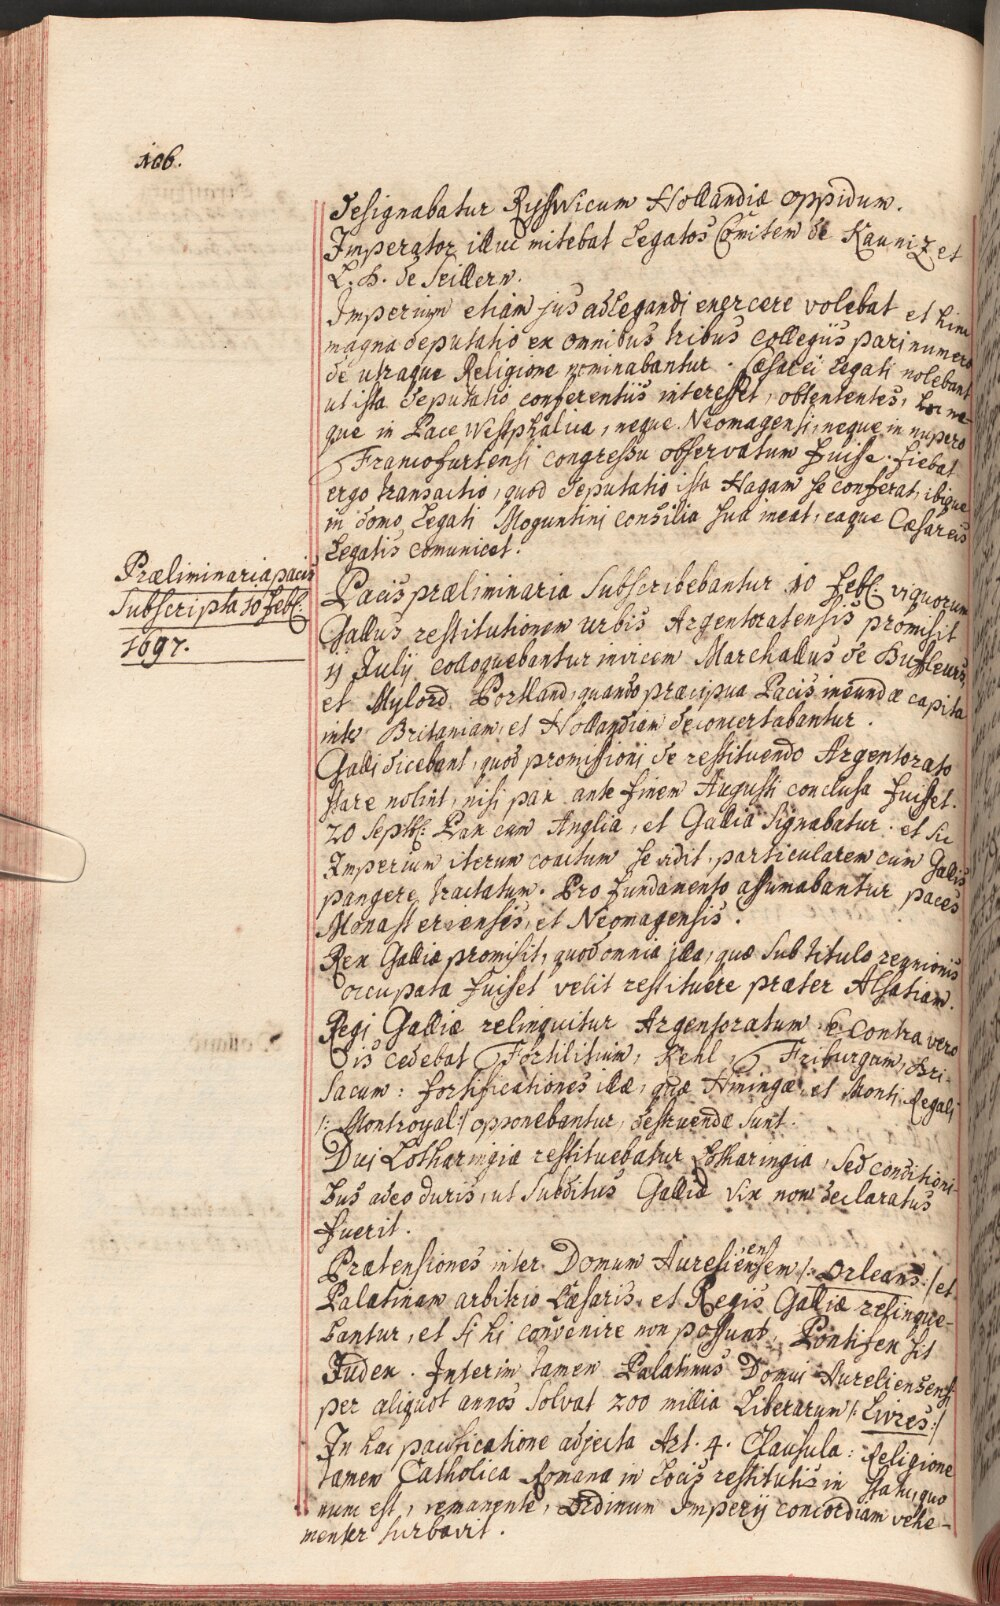 106.
designabatur Ryswicum Hollandiæ oppidum.
Imperator illuc mitebat Legatos Comitem de Kauniz et
L. B. de Seillern.
Imperium etiam jus adlegandi exercere volebat et hinc
magna deputatio ex omnibus tribus collegiis pari numero
de utraque Religione nominabantur. Cæsarei Legati nolebant
ut ista deputatio conferentiis interesset, obtententes, hoc ne-
que in Pace Westphalica, neque Neomagensi, neque in nupero
Francofurtensi congressu observatum fuisse. fiebat
ergo transactio, quod deputatio ista Hagam se conferat, ibique
in domo Legati Moguntini consilia sua ineat, eaque Cæsareis
Legatis comunicet.
Præliminaria pacis
subscripta 10 Febr:
1697.
Pacis præliminaria subscribebantur 10 Febr: vi quorum
Gallus restitutionem urbis Argentoratensis promisit
y July colloquebantur invicem Marchallus de Buffleurs,
et Mylord Portland, quando præcipua Pacis ineundæ capita
inter Britaniam, et Hollandiam deconcertabantur.
Galli dicebant, quod promissioni de restituendo Argentorato
stare nolint, nisi pax ante finem Augusti conclusa fuisset.
20 Septbr: Pax cum Anglia, et Gallia signabatur. et sic
Imperium iterum coactum se vidit, particularem cum Gallis
pangere tractatum. Pro fundamento assumabantur paces
Monasteriensis, et Neomagensis.
Rex Galliæ promisit, quod omnia illa, quæ sub titulo regnionis
occupata fuisset velit restituere præter Alsatiam.
Regi Galliæ relinquitur Argentoratum. e Contra vero
is cedebat Fortilitium, Kehl, Friburgam, Bri-
sacum: fortificationes illæ, quæ Hiningæ, et Monti Regali
/: Montroyal:/ opponebantur, destruendæ sunt.
Duci Lotharingiæ restituebatur Lotharingia, sed conditioni-
bus adeo duris, ut subditus Galliæ vix non declaratus
fuerit.
Prætensiones inter Domum Aureliensem /: Orleans:/ et
Palatinam arbitrio Cæsaris, et Regis Galliæ relinque-
bantur, et si hi convenire non possunt, Pontifex sit
Judex. Interim tamen Palatinus Domui Aureliensensi
per aliquot annos solvat 200 millia Liberarum /: Livres:/
In hac pacificatione adjecta Art. 4. Clausula: Religione
tamen Catholica Romana in Locis restitutis in statu, quo
nunc est, remanente, Ordinum Imperij concordiam vehe-
menter turbavit.